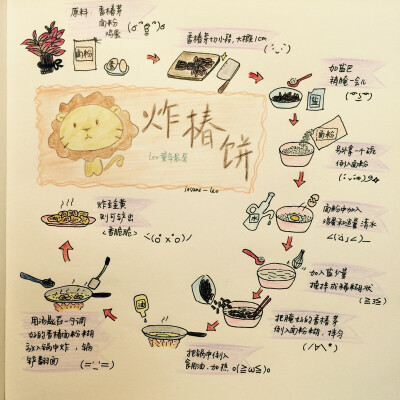 原料: 香椿芽
面粉
鸡蛋
面粉
香椿芽切小段,大概1cm
加盐巴
稍腌一会儿
盐
面粉
另外拿一个碗
倒入面粉
面粉中加入
鸡蛋和适量清水
加入盐少量
搅拌成稀糊状
把腌好的香椿芽
倒入面粉糊,拌匀
把锅中倒入
食用油,加热
油
用汤匙舀一勺调
好的香椿面粉糊
放入锅中炸,稍
等翻面
炸至金黄
则可铲出
<香脆脆>
炸椿饼
Leo